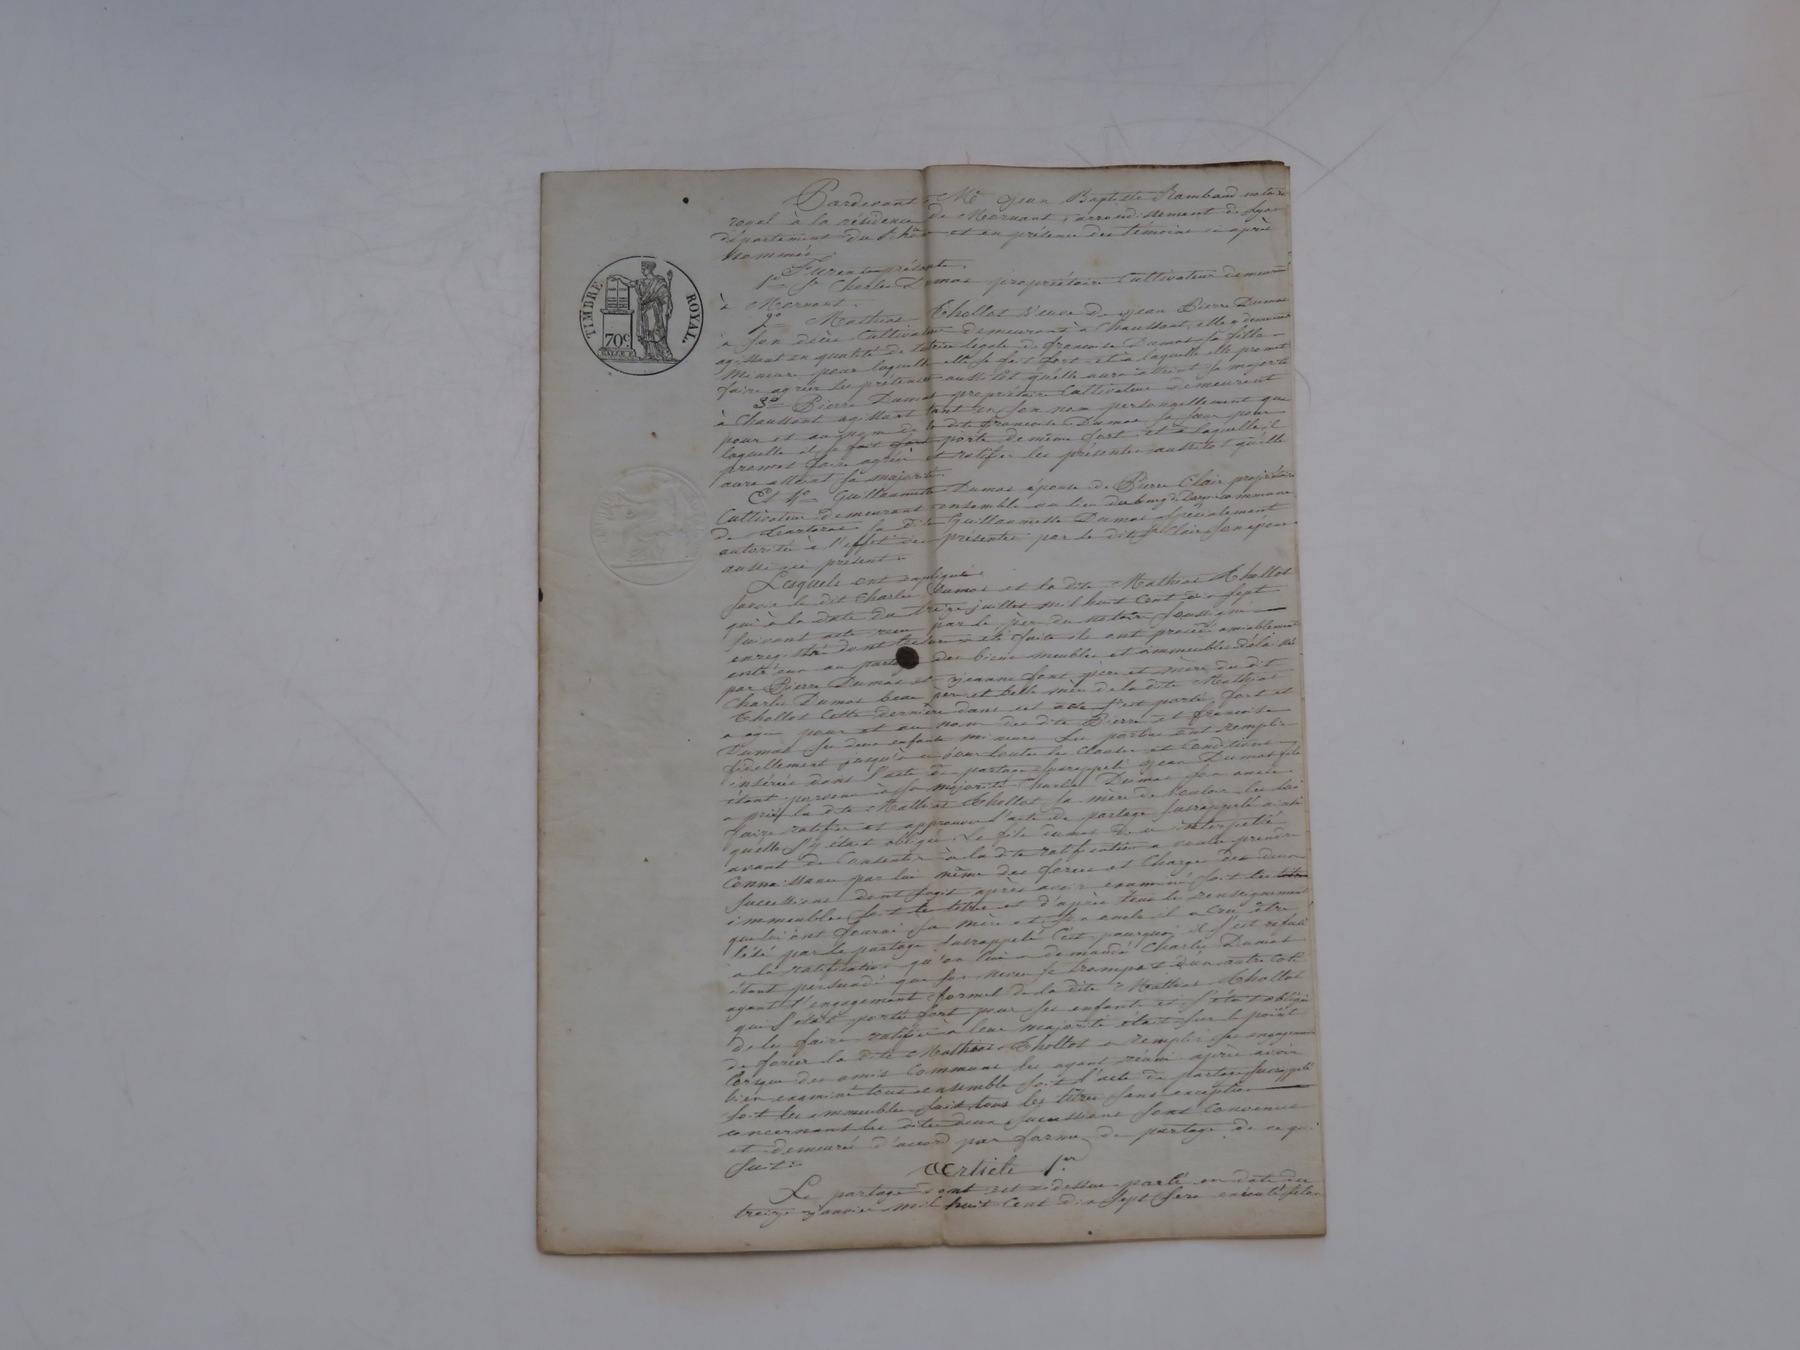 TIMBRE ROYAL
70c
Pardevant Me Jean Baptiste Rambaud notaire
royal à la résidence de Mornant, arrondissement de Lyon
département du Rhône et en présence des témoins ci après
nommés.
Furent présents.
1o Sr Charles Dumas propriétaire Cultivateur demeurant
à Mornant.
2o Mathias Thollot veuve de Jean Pierre Dumas
à son décès Cultivateur demeurant à Chaussant, elle y demeurant
agissant en qualité de tutrice légale de francoise Dumas sa fille
Mineure pour laquelle elle se fait fort et à laquelle elle promet
faire agréer les présentes aussitôt quelle aura atteint sa majorité
3o Pierre Dumas propriétaire Cultivateur demeurant
à Chaussant agissant tant en son nom personnellement que
pour et au nom de la dite francoise Dumas sa sœur pour
laquelle il se fait porte de même fort et à laquelle il
promet faire agréer et ratifier les présentes aussitôt quelle
aura atteint sa majorité.
Et 4o Guillaumette Dumas épouse de Pierre Clair propriétaire
Cultivateur demeurant ensemble au lieu du bourg de Dargoire commune
de Tartaras la dite Guillaumette Dumas spécialement
autorisée à l'effet des présentes par le dit Clair son époux
aussi ici présent.
Lesquels ont expliqué
savoir le dit Charles Dumas et la dite Mathias Thollot
qu'à la date du treize juillet mil huit Cent dix sept
suivant acte reçu par le père du notaire soussigné
enregistré dont lecture a été faite ils ont procédé amiablement
entr'eux au partage des biens meubles et immeubles délaissés
par Pierre Dumas et Jeanne font père et mère du dit
Charles Dumas beau père et belle mère de la dite Mathias
Thollot Cette dernière dans cet acte s'est portée fort et
a agi pour et au nom des dits Pierre et francoise
Dumas ses deux enfants mineurs les parties ont remplis
fidellement jusqu'à ce jour toutes les Clauses et Conditions
insérées dans l'acte de partage susrappelé Jean Dumas fils
étant parvenu à sa majorité Charles Dumas son oncle
a prié la dite Mathias Thollot sa mère de vouloir les lui
faire ratifier et approuver l'acte de partage susrappelé ainsi
quelle s'y était obligée. Le fils dumas de ce interpellé
avant de Consentir à la dite ratification a voulu prendre
Connaissance par lui même des forces et Charges des deux
successions dont s'agit après avoir examiné soit les
immeubles soit les titres et d'après tous les renseignements
que lui ont fourni sa mère et son oncle il a cru être
lésé par le partage susrappelé C'est pourquoi il s'est refusé
à la ratification qu'on lui a demandé Charles Dumas
étant persuadé que son neveu se trompait d'un autre coté
ayant l'engagement formel de la dite Mathias Thollot
qui s'était portée fort pour ses enfants et s'était obligée
de les faire ratifier à leur majorité était sur le point
de forcer la dite Mathias Thollot a remplir ses engagements
lorsque des amis Communs les ayant réuni après avoir
bien examiné tous ensemble soit l'acte de partage susrappelé
soit les immeubles soit tous les titres sans exception
concernant les dites deux successions sont convenus
et demeurés d'accord par forme de partage de ce qui
suit :
Article 1er
Le partage dont est ci dessus parlé en date du
treize janvier mil huit Cent dix sept sera exécuté selon